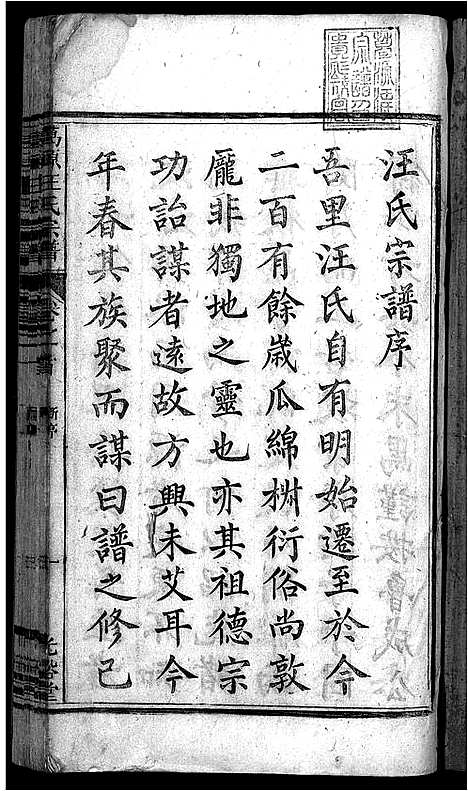 汪氏宗譜序
吾里汪氏自有明始遷至於今
二百有餘歲瓜綿椒衍俗尚敦
龐非獨地之靈也亦其祖德宗
功詒謀者遠故方興未艾耳今
年春其族聚而謀曰譜之修已
汪氏宗譜